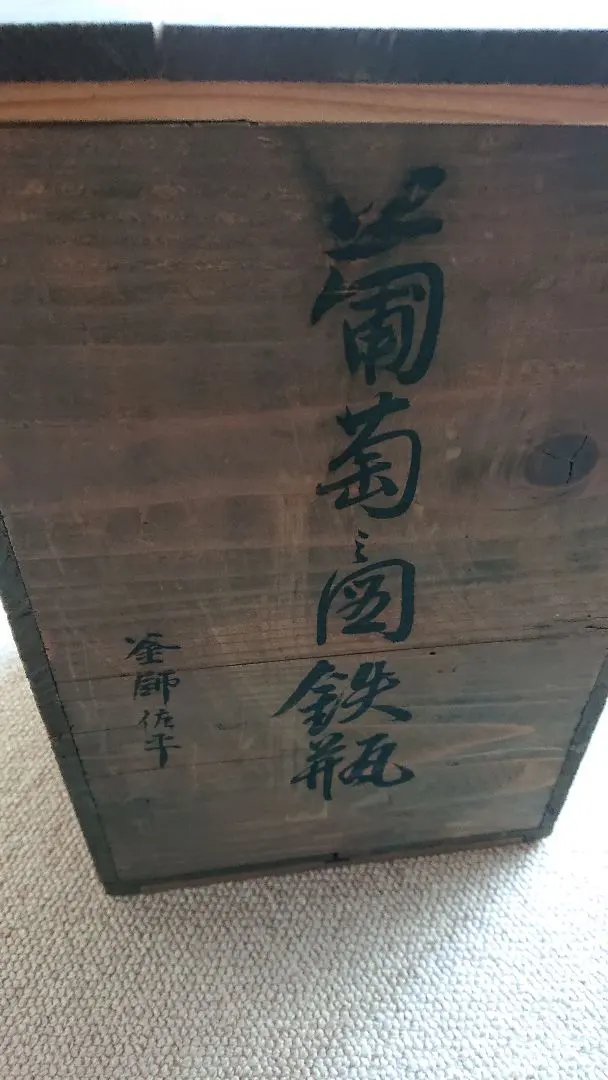 葡萄之図鉄瓶
釜師佐平